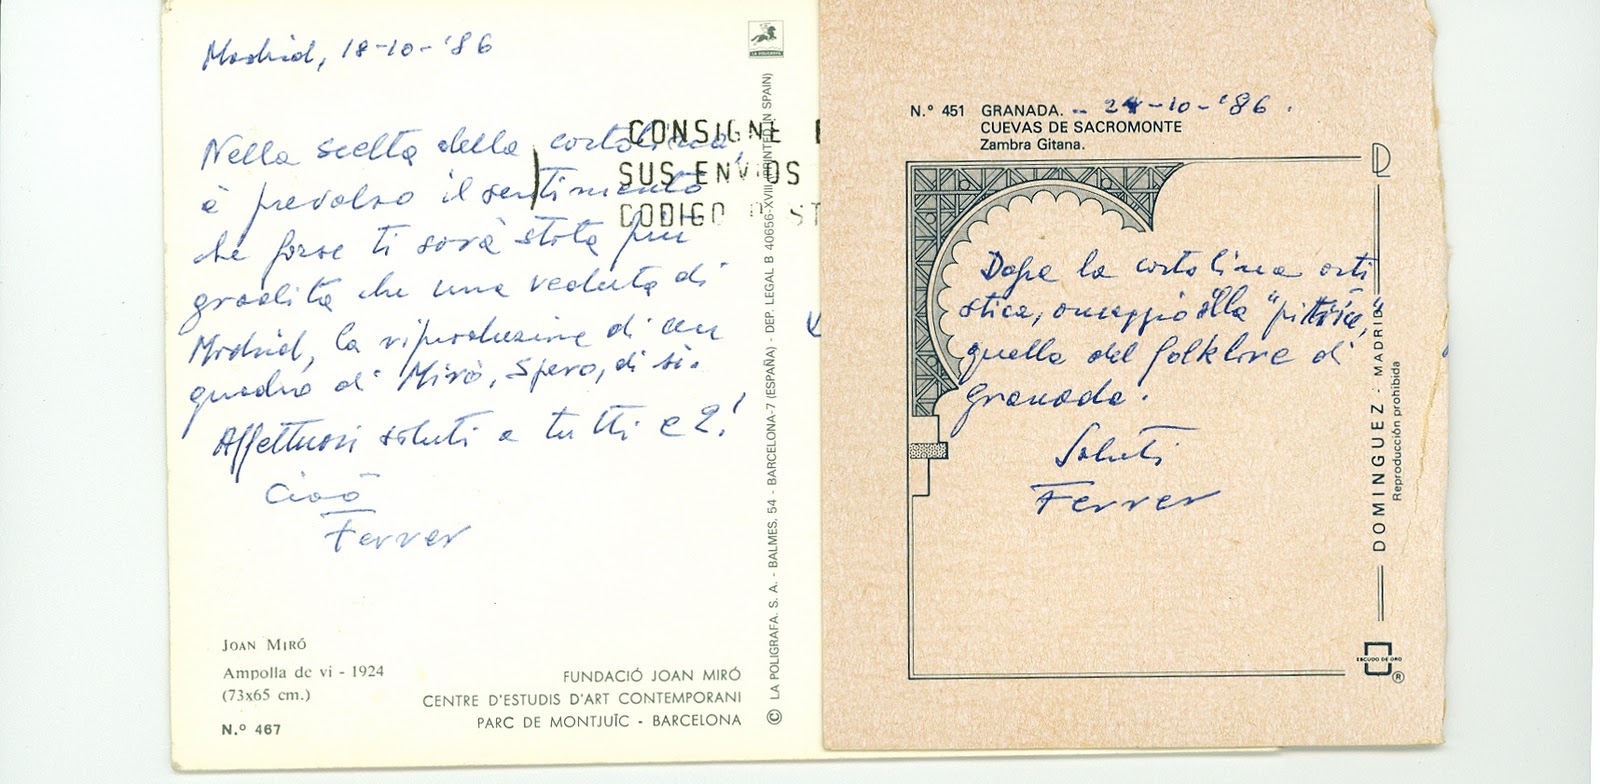 Madrid, 18-10-'86
Nella scelta della cartolina
è prevalso il sentimento
che forse ti sarà stata più
gradita che una veduta di
Madrid, la riproduzione di un
quadro di Mirò, spero, di sì.
Affettuosi saluti a tutti e 2!
Ciaò
Ferrer
CONSIGNE
SUS ENVIOS
CODIGO
JOAN MIRÓ
Ampolla de vi - 1924
(73x65 cm.)
N.º 467
FUNDACIÓ JOAN MIRÓ
CENTRE D'ESTUDIS D'ART CONTEMPORANI
PARC DE MONTJUÏC - BARCELONA
© LA POLIGRAFA. S. A. - BALMES. 54 - BARCELONA-7 (ESPAÑA) - DEP. LEGAL B 40656-XVIII (PRINTED IN SPAIN)
LA POLIGRAFA
N.º 451 GRANADA. - 24-10-'86.
CUEVAS DE SACROMONTE
Zambra Gitana.
Dopo la cartolina arti
stica, omaggio alla "pittrice",
quella del folklore di
Granada.
Saluti
Ferrer
DOMINGUEZ · MADRID
Reproducción prohibida
ESCUDO DE ORO
®